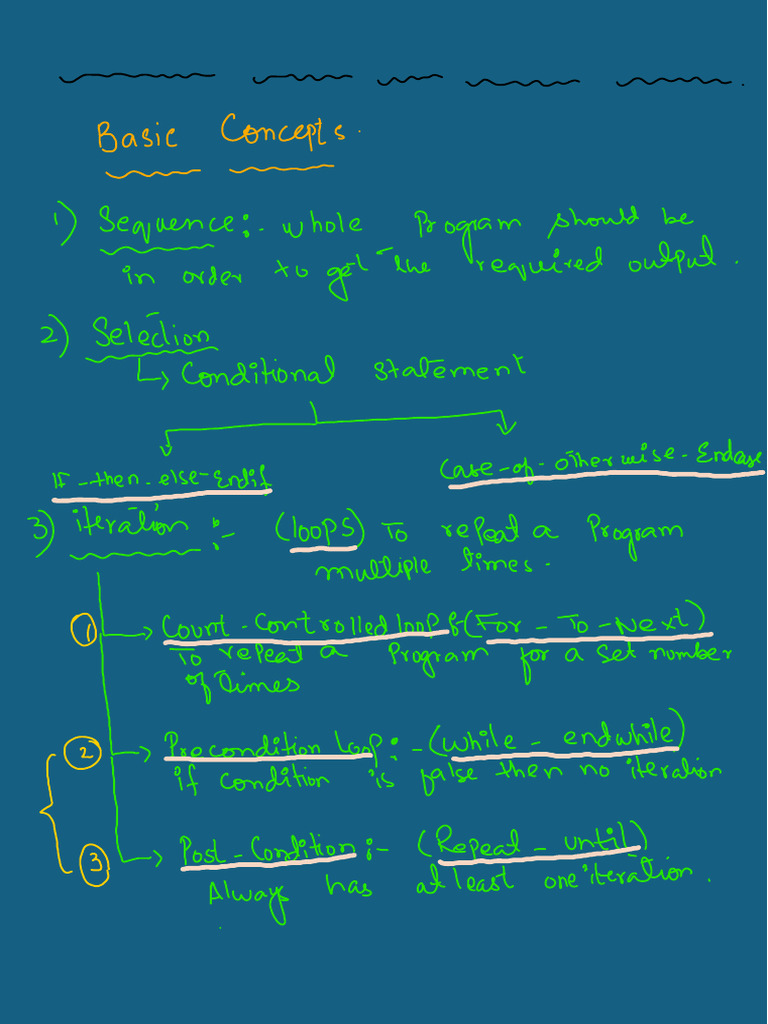 Basic Concepts.
1) Sequence:- whole Program should be
in order to get the required output.
2) Selection
↳ Conditional statement
If-then-else-Endif
Case-of-otherwise-Endcase
3) iteration :- (loops) To repeat a Program
multiple times.
① → Count-Controlled loop & (For-To-Next)
To repeat a Program for a set number
of times
② → Precondition loop:- (while-endwhile)
if condition is false then no iteration
③ → Post-Condition:- (Repeat-until)
Always has at least one iteration.